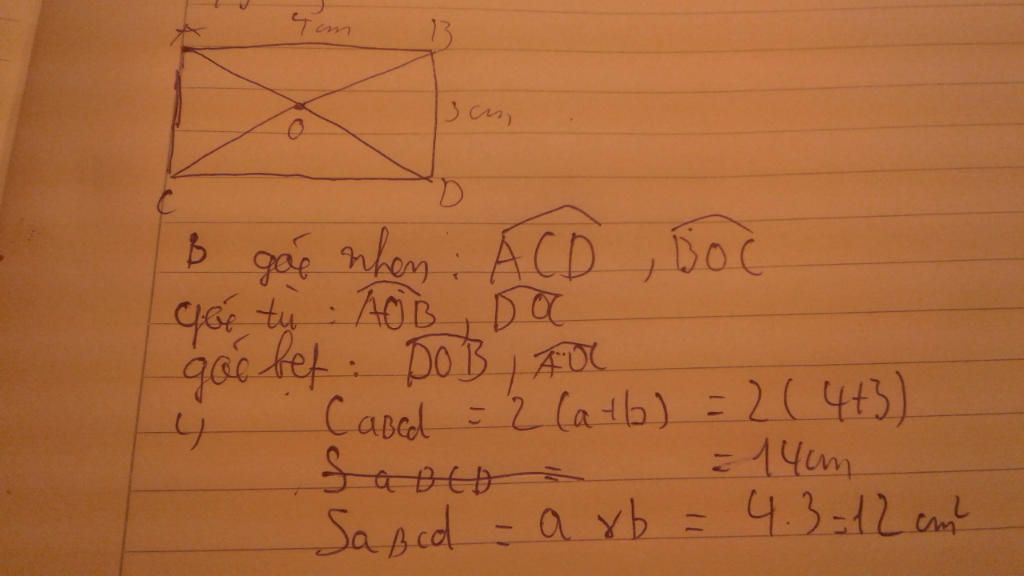 4cm
A B
3cm
O
C D
B góc nhọn : ACD , BOC
góc tù : AOB , DOC
góc bẹt : DOB , AOC
C, CABCd = 2 (a+b) = 2( 4+3)
SaBCD = = 14cm
SaBcd = a x b = 4.3=12 cm²